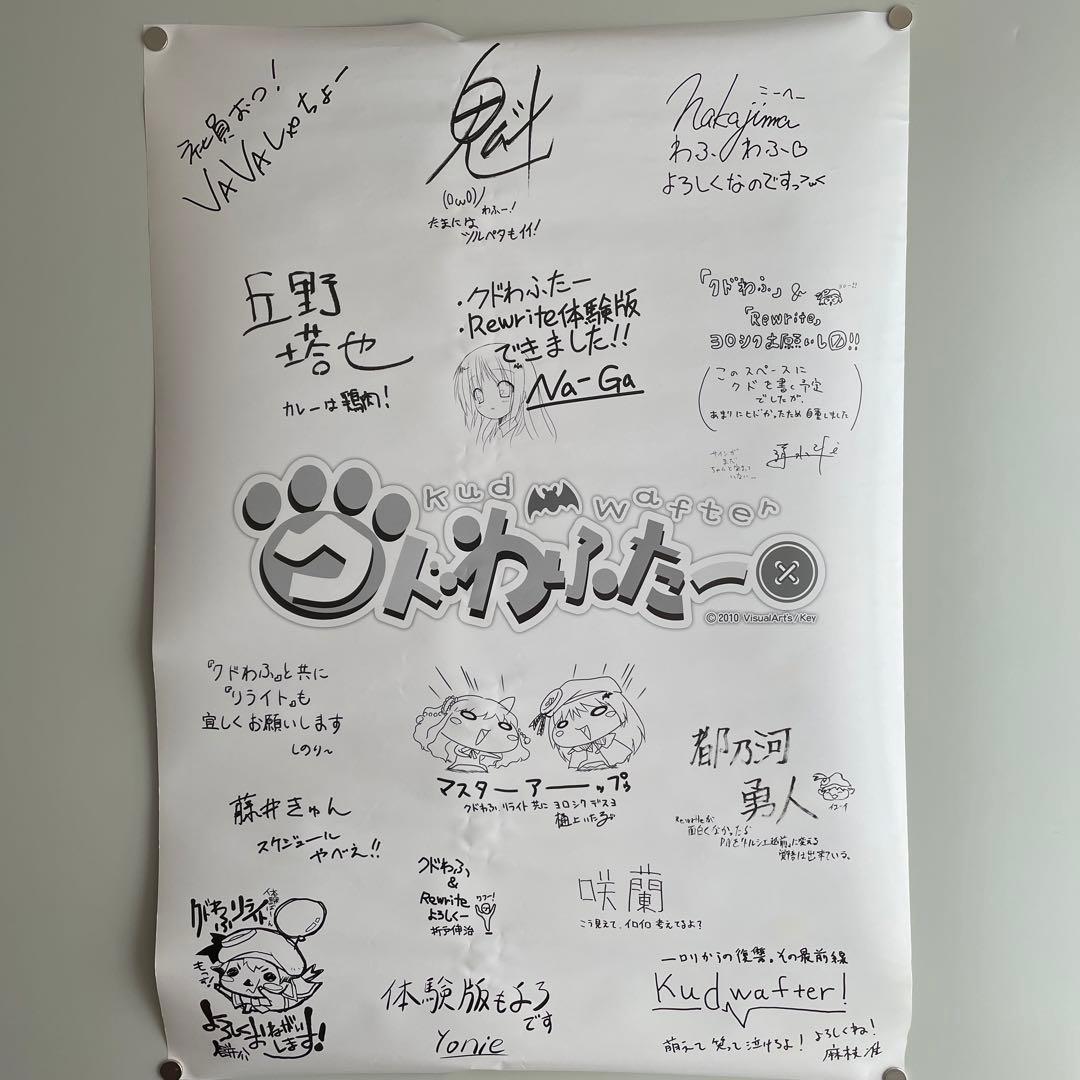 社員おつ!
VAVAしゃちょー
魁
(0w0)ノ わふー!
たまには
ツルペタもイイ!
こーへー
Nakajima
わふーわふー
よろしくなのですっ
丘野
塔也
カレーは鶏肉!
・クドわふたー
・Rewrite体験版
できました!!
Na-Ga
「クドわふ」&
「Rewrite」
ヨロシクお願いし〼!!
(このスペースに
クドを書く予定
でしたが、
あまりにヒドかったため自重しました)
サインが
まだ
ちゃんと決まって
いない…
kud wafter
クドわふたー
©2010 VisualArt's/Key
『クドわふ』と共に
『リライト』も
宜しくお願いします
しのり~
マスターアーップゥ
クドわふ、リライト共にヨロシクデスヨ
樋上いたる
都乃河
勇人
イエーイ
Rewriteが
面白くなかったら
覚悟は出来ている。
藤井きゅん
スケジュール
やべぇ!!
クドわふ
&
Rewrite
よろしくー
折戸伸治
ワフー!
咲蘭
こう見えて、イロイロ考えてるよ?
クドわふリライト
体験ばーん
もっさ!
よろしく
おねがい
します!
体験版もよろ
です
Yonie
一ロリからの復讐。その最前線
Kud wafter!
萌えて笑って泣けるよ!
よろしくね!
麻枝 准